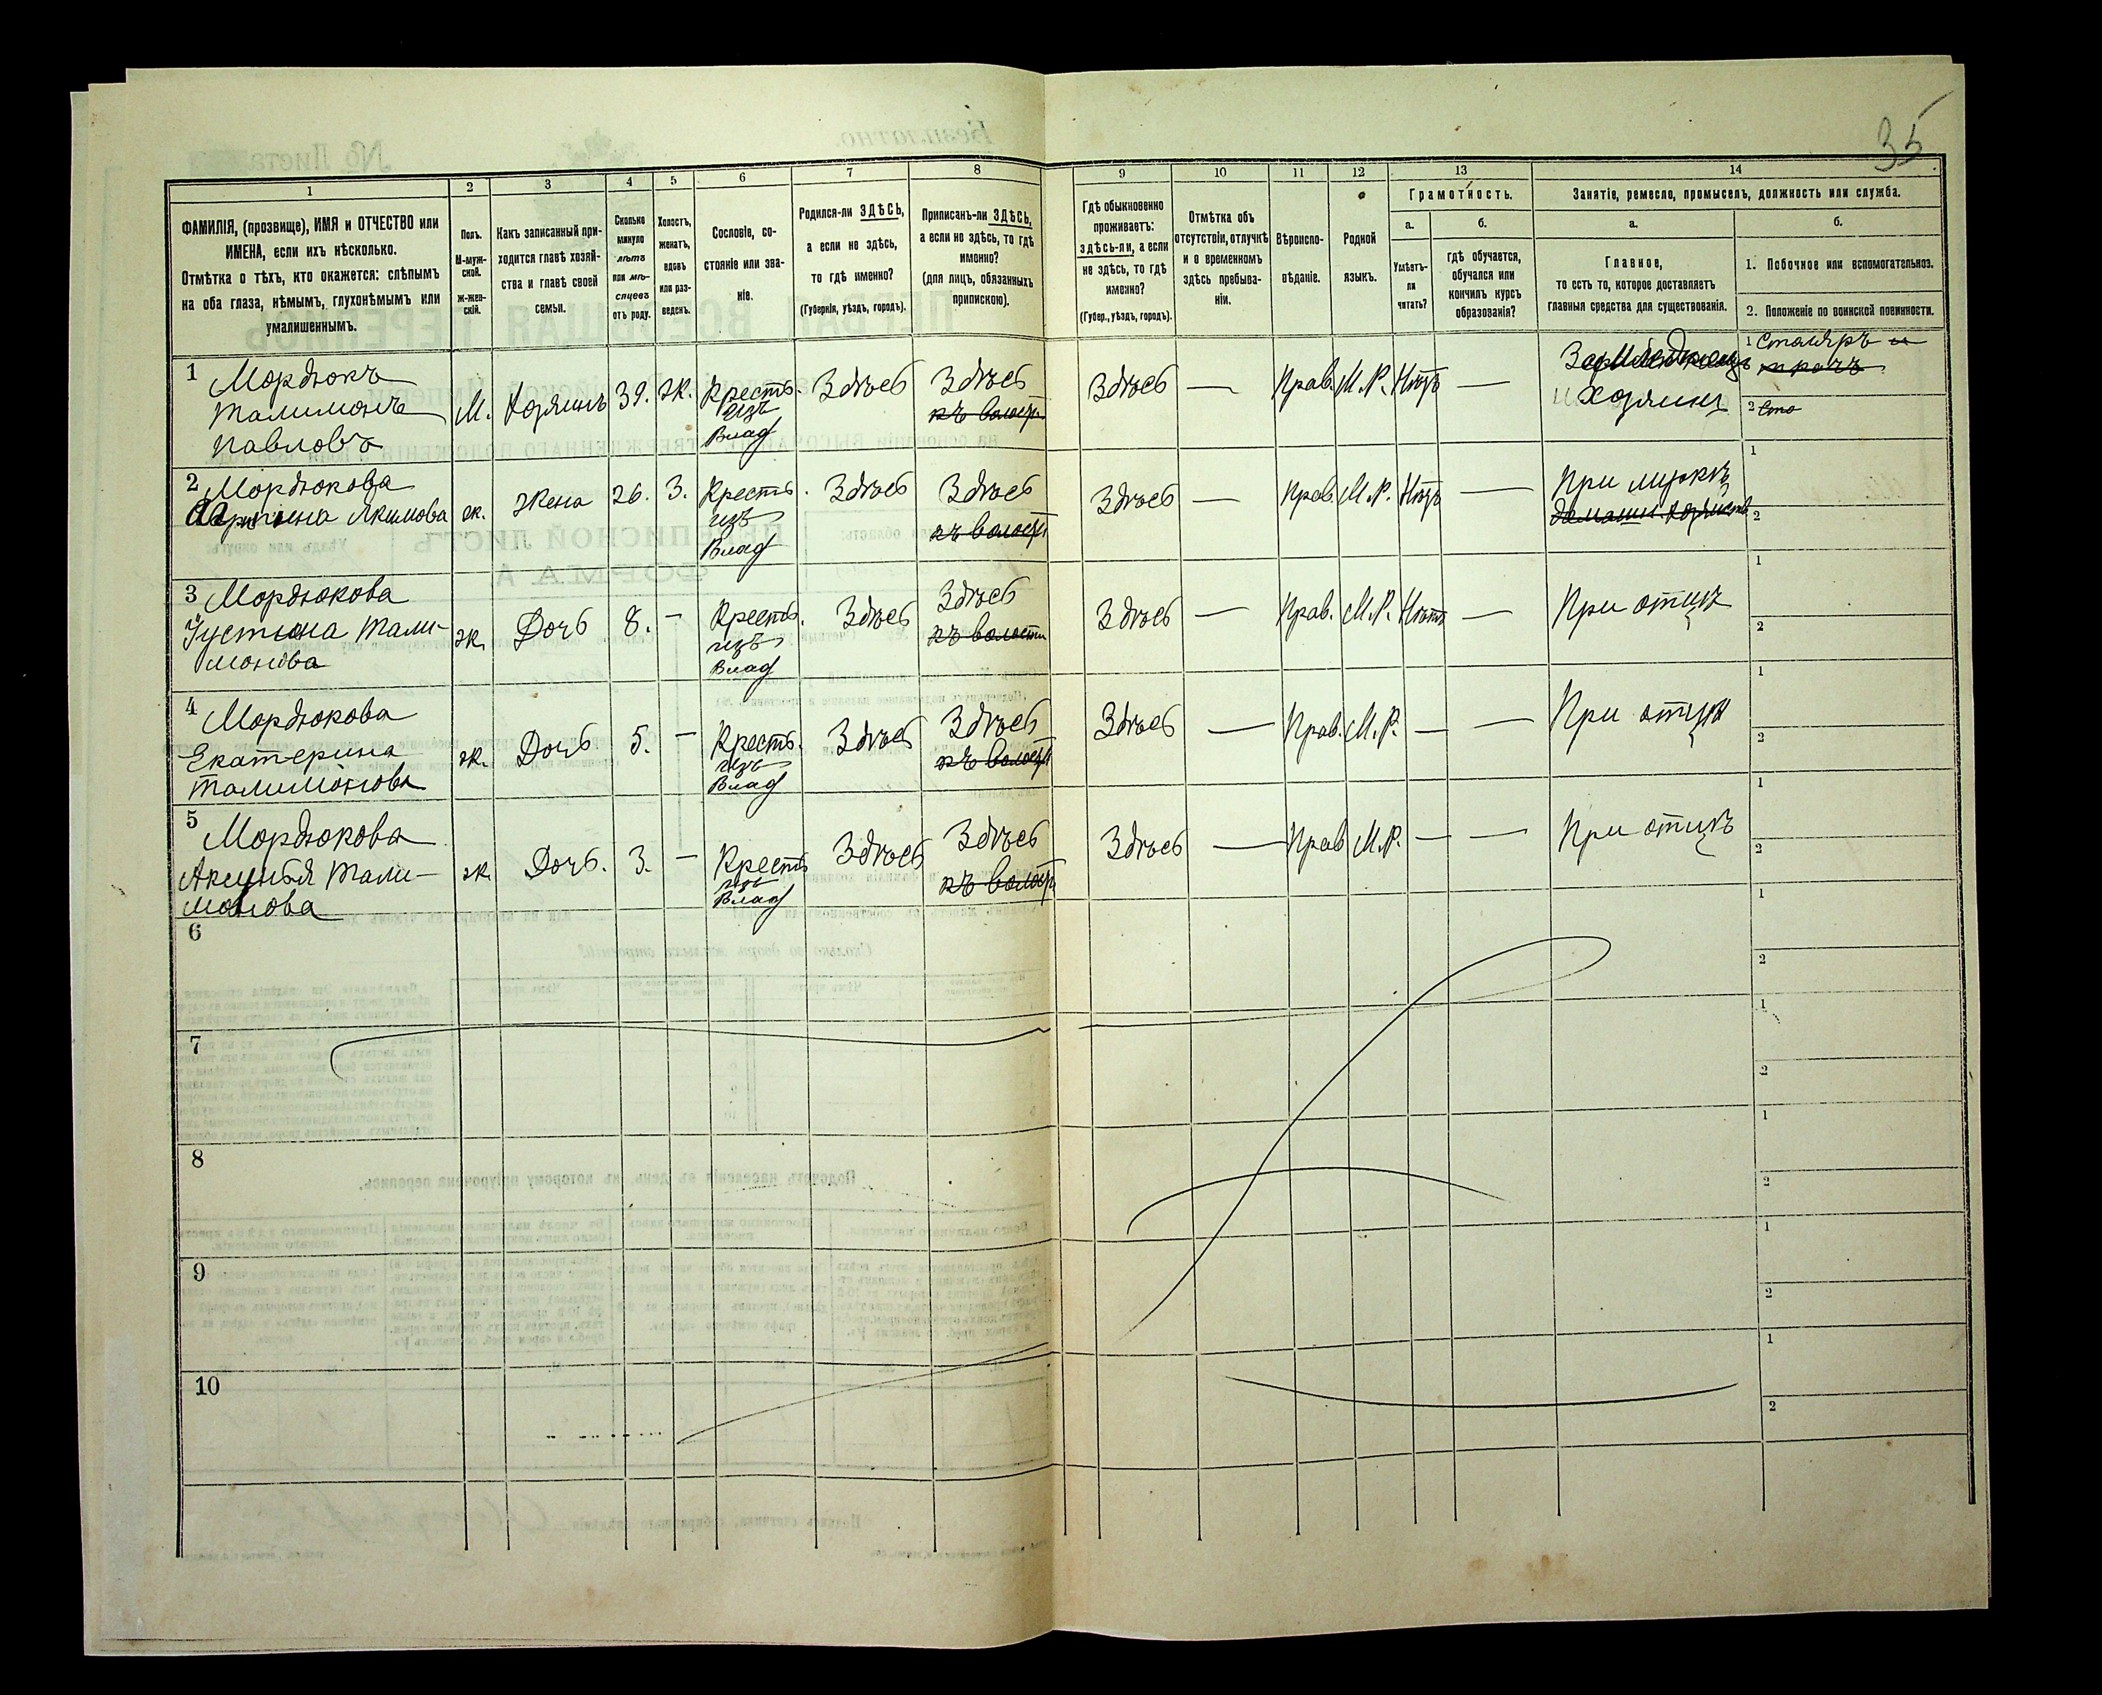 35
1
2
3
4
5
6
7
8
9
10
11
12
13
14
ФАМИЛІЯ, (прозвище), ИМЯ и ОТЧЕСТВО или
ИМЕНА, если ихъ нѣсколько.
Отмѣтка о тѣхъ, кто окажется: слѣпымъ
на оба глаза, нѣмымъ, глухонѣмымъ или
умалишеннымъ.
Полъ.
М-муж-
ской.
Ж-жен-
скій.
Какъ записанный при-
ходится главѣ хозяй-
ства и главѣ своей
семьи.
Сколько
минуло
лѣтъ
или мѣ-
сяцевъ
отъ роду.
Холостъ,
женатъ,
вдовъ
или раз-
веденъ.
Сословіе, со-
стояніе или зва-
ніе.
Родился-ли ЗДѢСЬ,
а если не здѣсь,
то гдѣ именно?
(Губернія, уѣздъ, городъ).
Приписанъ-ли ЗДѢСЬ,
а если не здѣсь, то гдѣ
именно?
(для лицъ, обязанныхъ
припискою).
Гдѣ обыкновенно
проживаетъ:
здѣсь-ли, а если
не здѣсь, то гдѣ
именно?
(Губер., уѣздъ, городъ).
Отмѣтка объ
отсутствіи, отлучкѣ
и о временномъ
здѣсь пребыва-
ніи.
Вѣроиспо-
вѣданіе.
Родной
языкъ.
Грамотность.
а.
Умѣетъ-
ли
читать?
б.
гдѣ обучается,
обучался или
кончилъ курсъ
образованія?
Занятіе, ремесло, промыселъ, должность или служба.
а.
Главное,
то есть то, которое доставляетъ
главныя средства для существованія.
б.
1. Побочное или вспомогательное.
2. Положеніе по воинской повинности.
1 Мордюкъ
Талимонъ
Павловъ
М. Хозяинъ 39. ж. Крестъ.
изъ
Влад
Здѣсь
Здѣсь
къ волости
Здѣсь — Прав. М.Р. Нѣтъ —
Хозяинъ
1 Столяръ и
2
2 Мордюкова
Якимова
ж. Жена 26. З. Крестъ.
изъ
Влад
Здѣсь
Здѣсь
къ волости
Здѣсь — Прав. М.Р. Нѣтъ —
При мужѣ
1
2
3 Мордюкова
Устиона Тали-
монова
ж. Дочь 8. — Крестъ.
изъ
Влад
Здѣсь
Здѣсь
къ волости
Здѣсь — Прав. М.Р. Нѣтъ —
При отцѣ
1
2
4 Мордюкова
Екатерина
Талимонова
ж. Дочь 5. — Крестъ.
изъ
Влад
Здѣсь
Здѣсь
къ волости
Здѣсь — Прав. М.Р. — —
При отцѣ
1
2
5 Мордюкова
Аксинья Тали-
монова
ж. Дочь. 3. — Крестъ
изъ
Влад
Здѣсь
Здѣсь
къ волости
Здѣсь — Прав М.Р. — —
При отцѣ
1
2
6
1
2
7
1
2
8
1
2
9
1
2
10
1
2